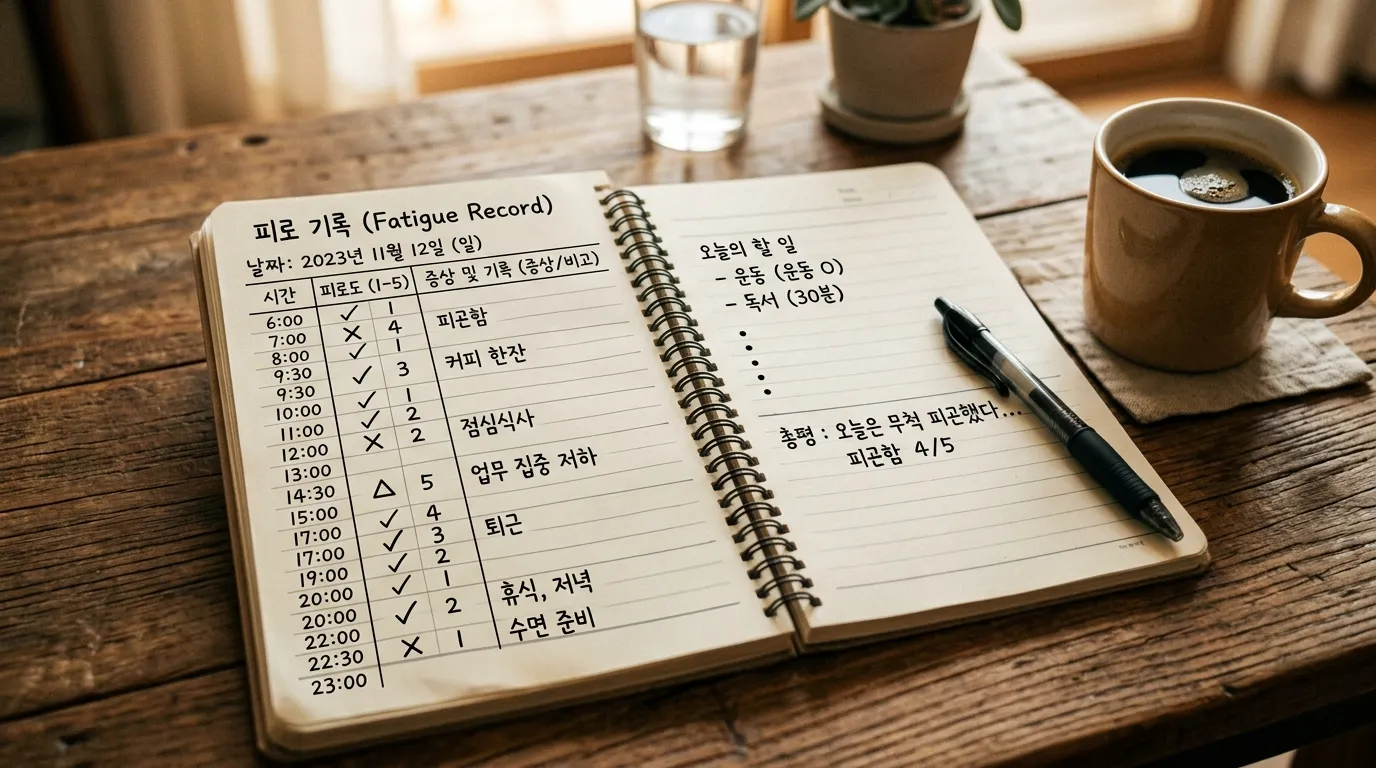 피로 기록 (Fatigue Record)
날짜: 2023년 11월 12일 (일)
시간 피로도 (1-5) 증상 및 기록 (증상/비고)
6:00 ✓ 1
7:00 ✕ 4 피곤함
8:00 ✓ 1
9:30 ✓ 3 커피 한잔
9:30
10:00 ✓ 1
11:00 ✓ 2
12:00 ✕ 2 점심식사
13:00
14:30 △ 5 업무 집중 저하
15:00 ✓ 4
17:00 ✓ 3 퇴근
17:00 ✓ 2
19:00 ✓ 1
20:00 ✓ 2 휴식, 저녁
20:00
22:00 ✕ 1 수면 준비
22:30
23:00
오늘의 할 일
- 운동 (운동 O)
- 독서 (30분)
•
•
•
•
•
총평 : 오늘은 무척 피곤했다...
피곤함 4/5